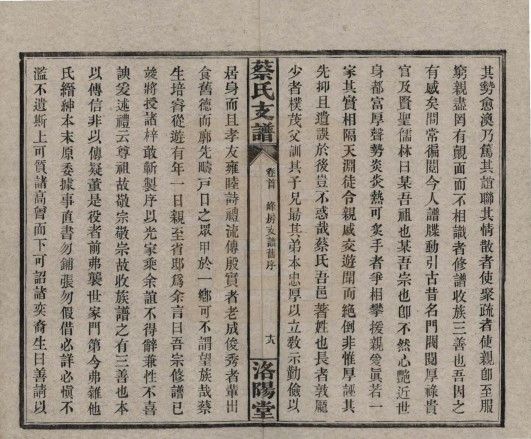 其勢愈渙乃篤其誼聯其情散者使聚疏者使親卽至服
窮親盡罔有覿面而不相識者修譜收族三善也吾因之
有感矣間常徧閱今人譜牒動引古昔名門閥閱厚祿貴
官及賢聖儒林曰某吾祖也某吾宗也卽不然心艷近世
身都富厚聲勢炎炎熱可炙手者爭相攀援親愛眞若一
家其實相隔天淵徒令親戚交遊聞而絕倒非惟厚誣其
先抑且遺誤於後豈不惑哉蔡氏吾邑著姓也長者敦龎
少者樸茂父訓其子兄勗其弟本忠厚以立敎示勤儉以
蔡氏支譜
卷首
峰房支譜舊序
十八
洛陽堂
居身而且孝友雍睦詩禮流傳殷實者老成後秀者輩出
食舊德而廓先疇戶口之眾甲於一鄉可不謂望族哉蔡
生培睿從遊有年一日親至省邸爲余言曰吾宗修譜已
竣將授諸梓敢靳製序以光家乘余誼不得辭兼性不喜
諛爰述禮云尊祖故敬宗敬宗故收族譜之有三善也本
以傳信非以傳疑董是役者前弗襲世家門第今弗雜他
氏縉紳本末原委據事直書勿鋪張勿假借必詳必愼不
濫不遺斯上可質諸高曾而下可詔諸奕裔生曰善請以